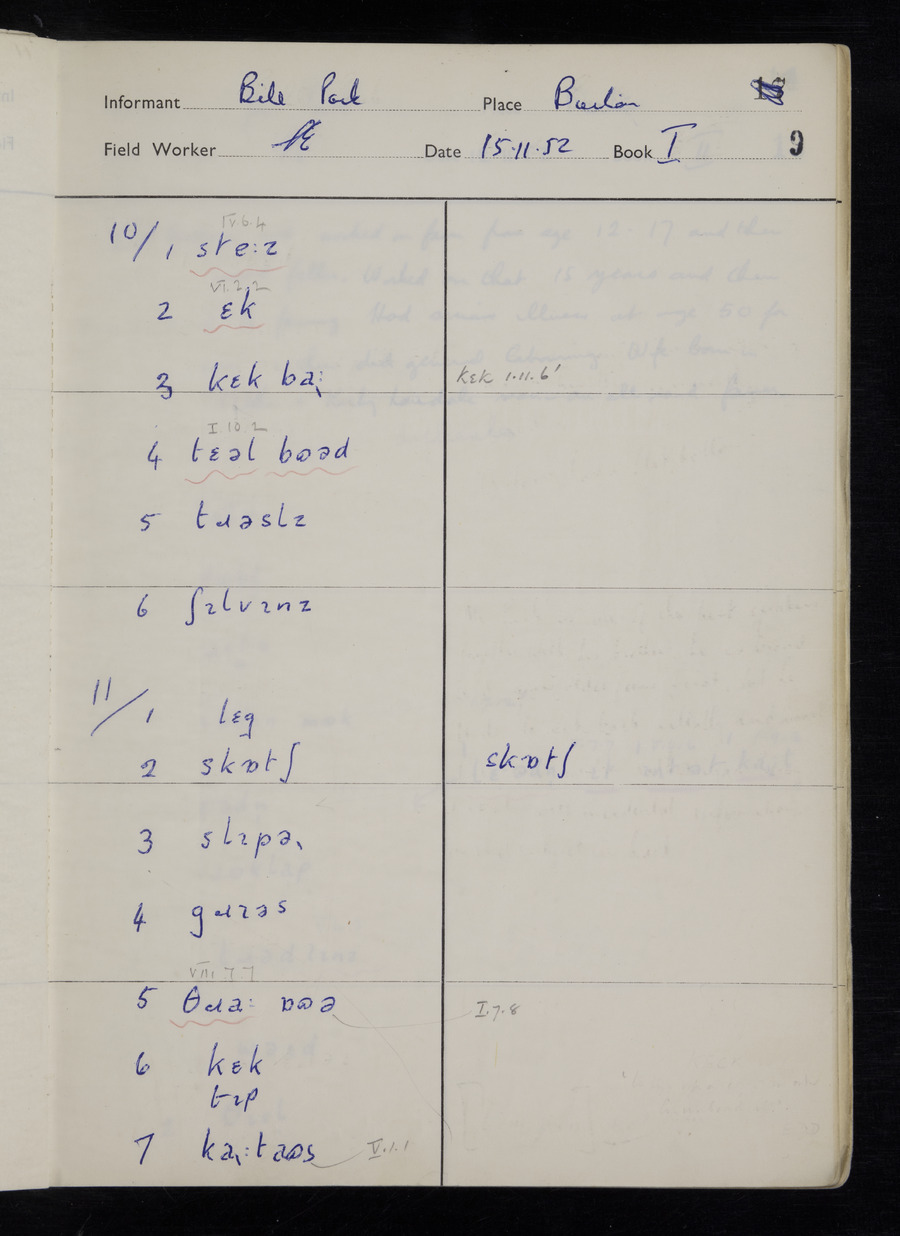 Informant Bill Park Place
Field Worker Date 15.11.52 Book I 9
IV 6 4
10/1 steːz
VI.2.2
2 ɛk
3 kɛk baː
kɛk 1.11.6'
I 10 2
4 tɛəl bʊəd
5 tɹəslz
6 ʃɪlvɪnz
11/1 lɛg
2 skɒtʃ skɒtʃ
3 slɪpə˞
4 gɹɪəs
VIII 7 7
5 θɹaː ɒʊə I.7.8
6 kɛk
tɪp
7 kaːtaʊs V.1.1